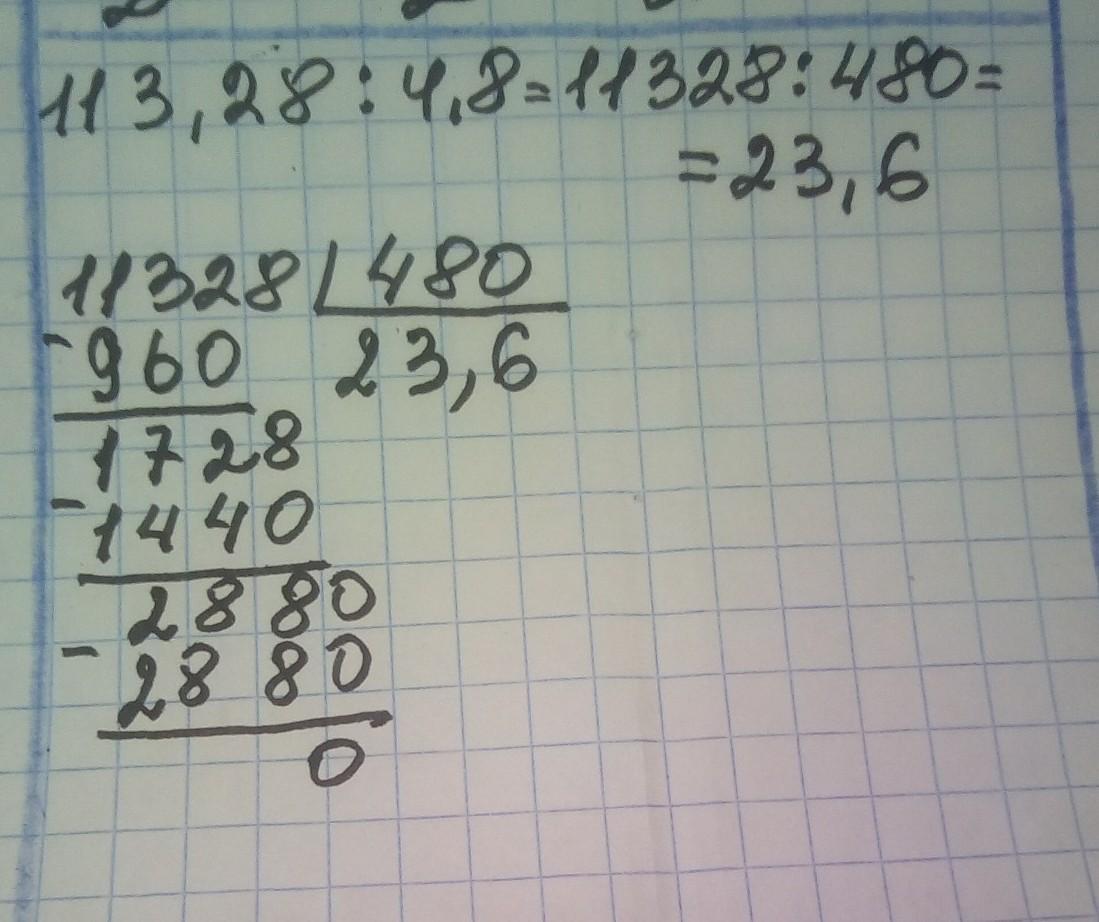 113,28 : 4,8 = 11328 : 480 =
= 23,6
11328 | 480
- 960 23,6
1728
- 1440
2880
- 2880
0